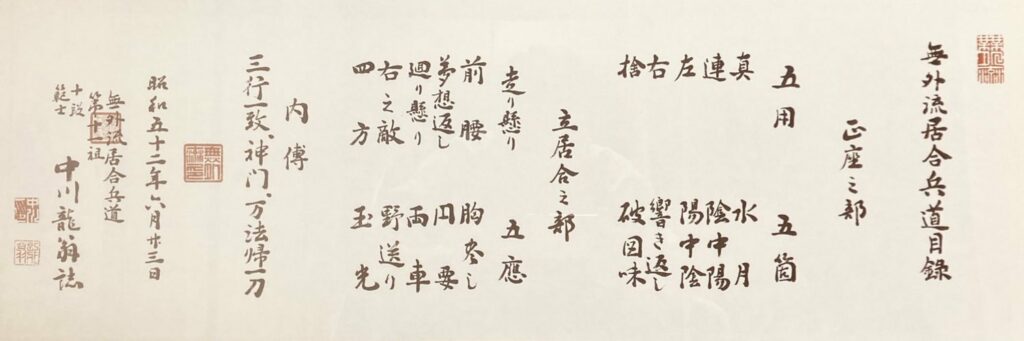 無外流居合兵道目録
正座之部
五用 五箇
真 水月
連 陰中陽
左 陽中陰
右 響き返し
捨 破図味
立居合之部
走り懸り 五應
前腰 胸尽し
夢想返し 円要
廻り懸り 両車
右之敵 野送り
四方 玉光
内傳
三行一致、神門、万法帰一刀
昭和五十二年六月廿三日
無外流居合兵道
第十一祖
十段
範士
中川龍翁誌